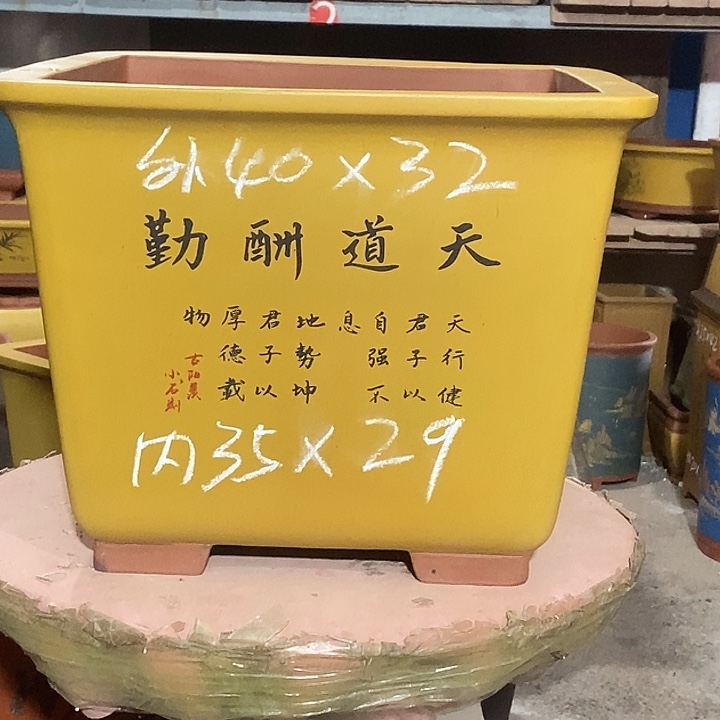 外40×32
天道酬勤
天行健
君子以
自强不
息
地势坤
君子以
厚德载
物
内35×29